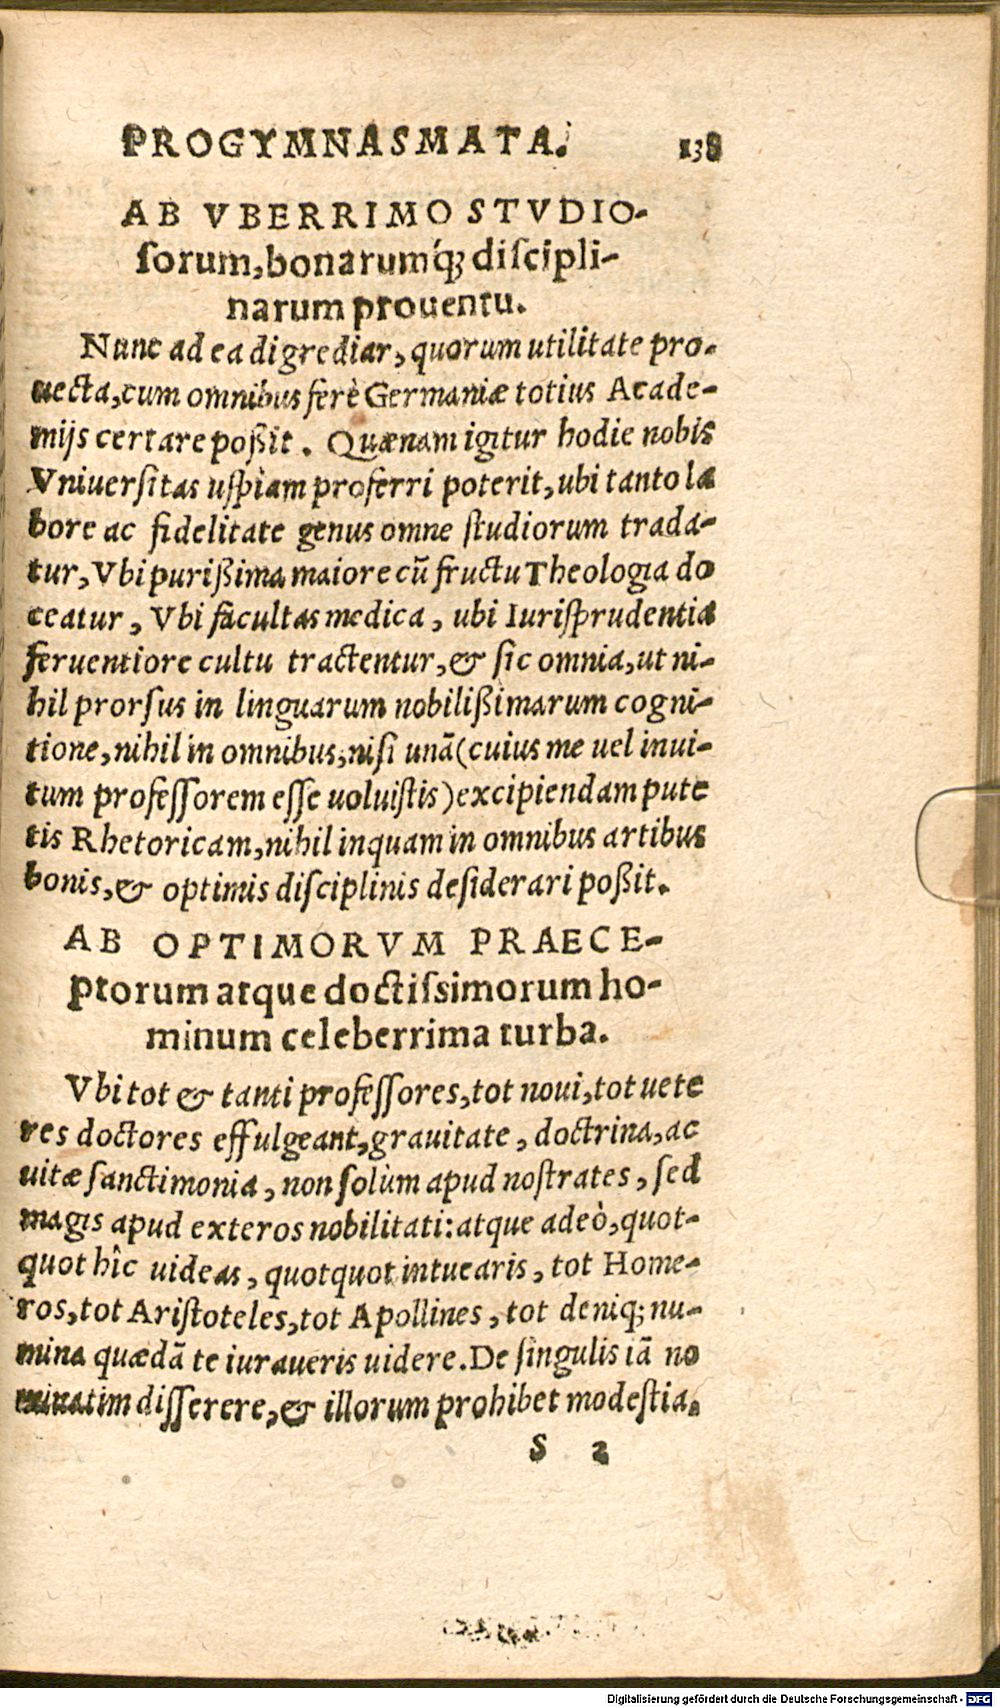 PROGYMNASMATA. 138
AB VBERRIMO STVDIO-
ſorum, bonarumq́; diſcipli-
narum prouentu.
Nunc ad ea digrediar, quorum utilitate pro-
uecta, cum omnibus ferè Germaniæ totius Acade-
mijs certare poßit. Quænam igitur hodie nobis
Vniuerſitas uſpìam proferri poterit, ubi tanto la
bore ac fidelitate genus omne ſtudiorum trada-
tur, Vbi purißima maiore cũ fructu Theologia do
ceatur, Vbi facultas medica, ubi Iuriſprudentia
feruentiore cultu tractentur, & ſic omnia, ut ni-
hil prorſus in linguarum nobilißimarum cogni-
tione, nihil in omnibus, niſi unã (cuius me uel inui-
tum profeſſorem eſſe uoluiſtis) excipiendam pute
tis Rhetoricam, nihil inquam in omnibus artibus
bonis, & optimis diſciplinis deſiderari poßit.
AB OPTIMORVM PRAECE-
ptorum atque doctiſsimorum ho-
minum celeberrima turba.
Vbi tot & tanti profeſſores, tot noui, tot uete
res doctores effulgeant, grauitate, doctrina, ac
uitæ ſanctimonia, non ſolùm apud noſtrates, ſed
magis apud exteros nobilitati: atque adeò, quot-
quot hîc uideas, quotquot intuearis, tot Home-
ros, tot Ariſtoteles, tot Apollines, tot deniq; nu-
mina quædã te iuraueris uidere. De ſingulis iã no
minatim diſſerere, & illorum prohibet modeſtia,
S 2
Digitalisierung gefördert durch die Deutsche Forschungsgemeinschaft - DFG